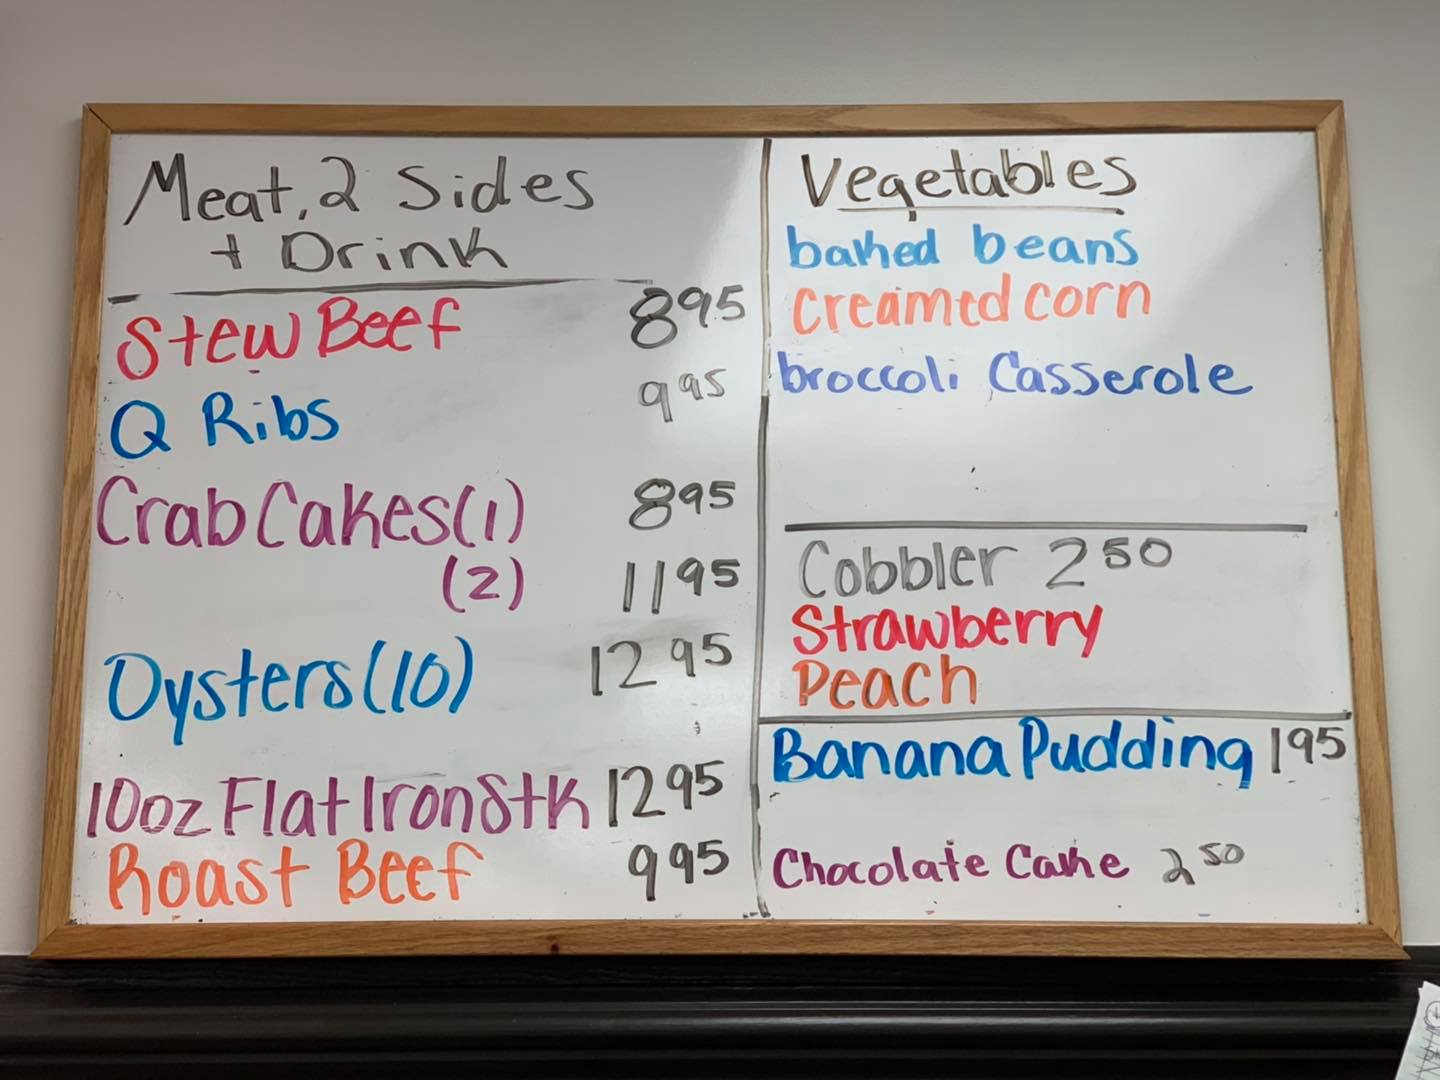 Meat, 2 Sides
+ Drink
Stew Beef 8 95
Q Ribs 9 95
Crab Cakes (1) 8 95
(2) 11 95
Oysters (10) 12 95
10oz Flat Iron Stk 12 95
Roast Beef 9 95
Vegetables
baked beans
Creamed corn
broccoli Casserole
Cobbler 2 50
Strawberry
Peach
Banana Pudding 1 95
Chocolate Cake 2 50